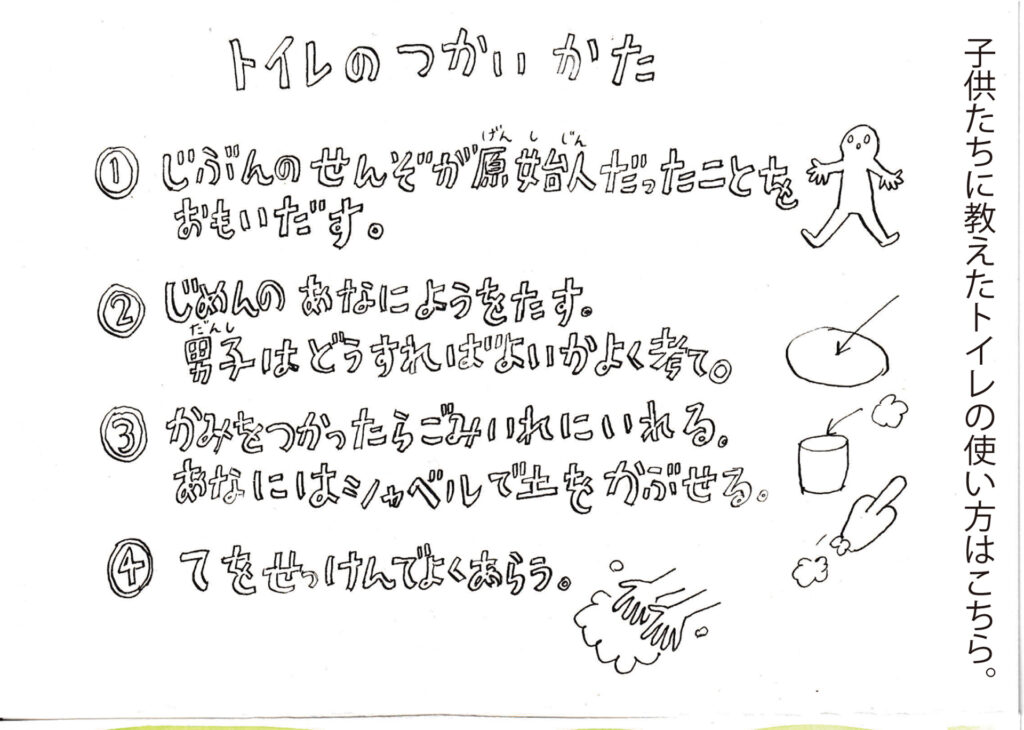 子供たちに教えたトイレの使い方はこちら。
トイレのつかいかた
① じぶんのせんぞが原始人だったことを
げんしじん
おもいだす。
② じめんのあなにようをたす。
だんし
男子はどうすればよいかよく考て。
③ かみをつかったらごみいれにいれる。
あなにはシャベルで土をかぶせる。
④ てをせっけんでよくあらう。